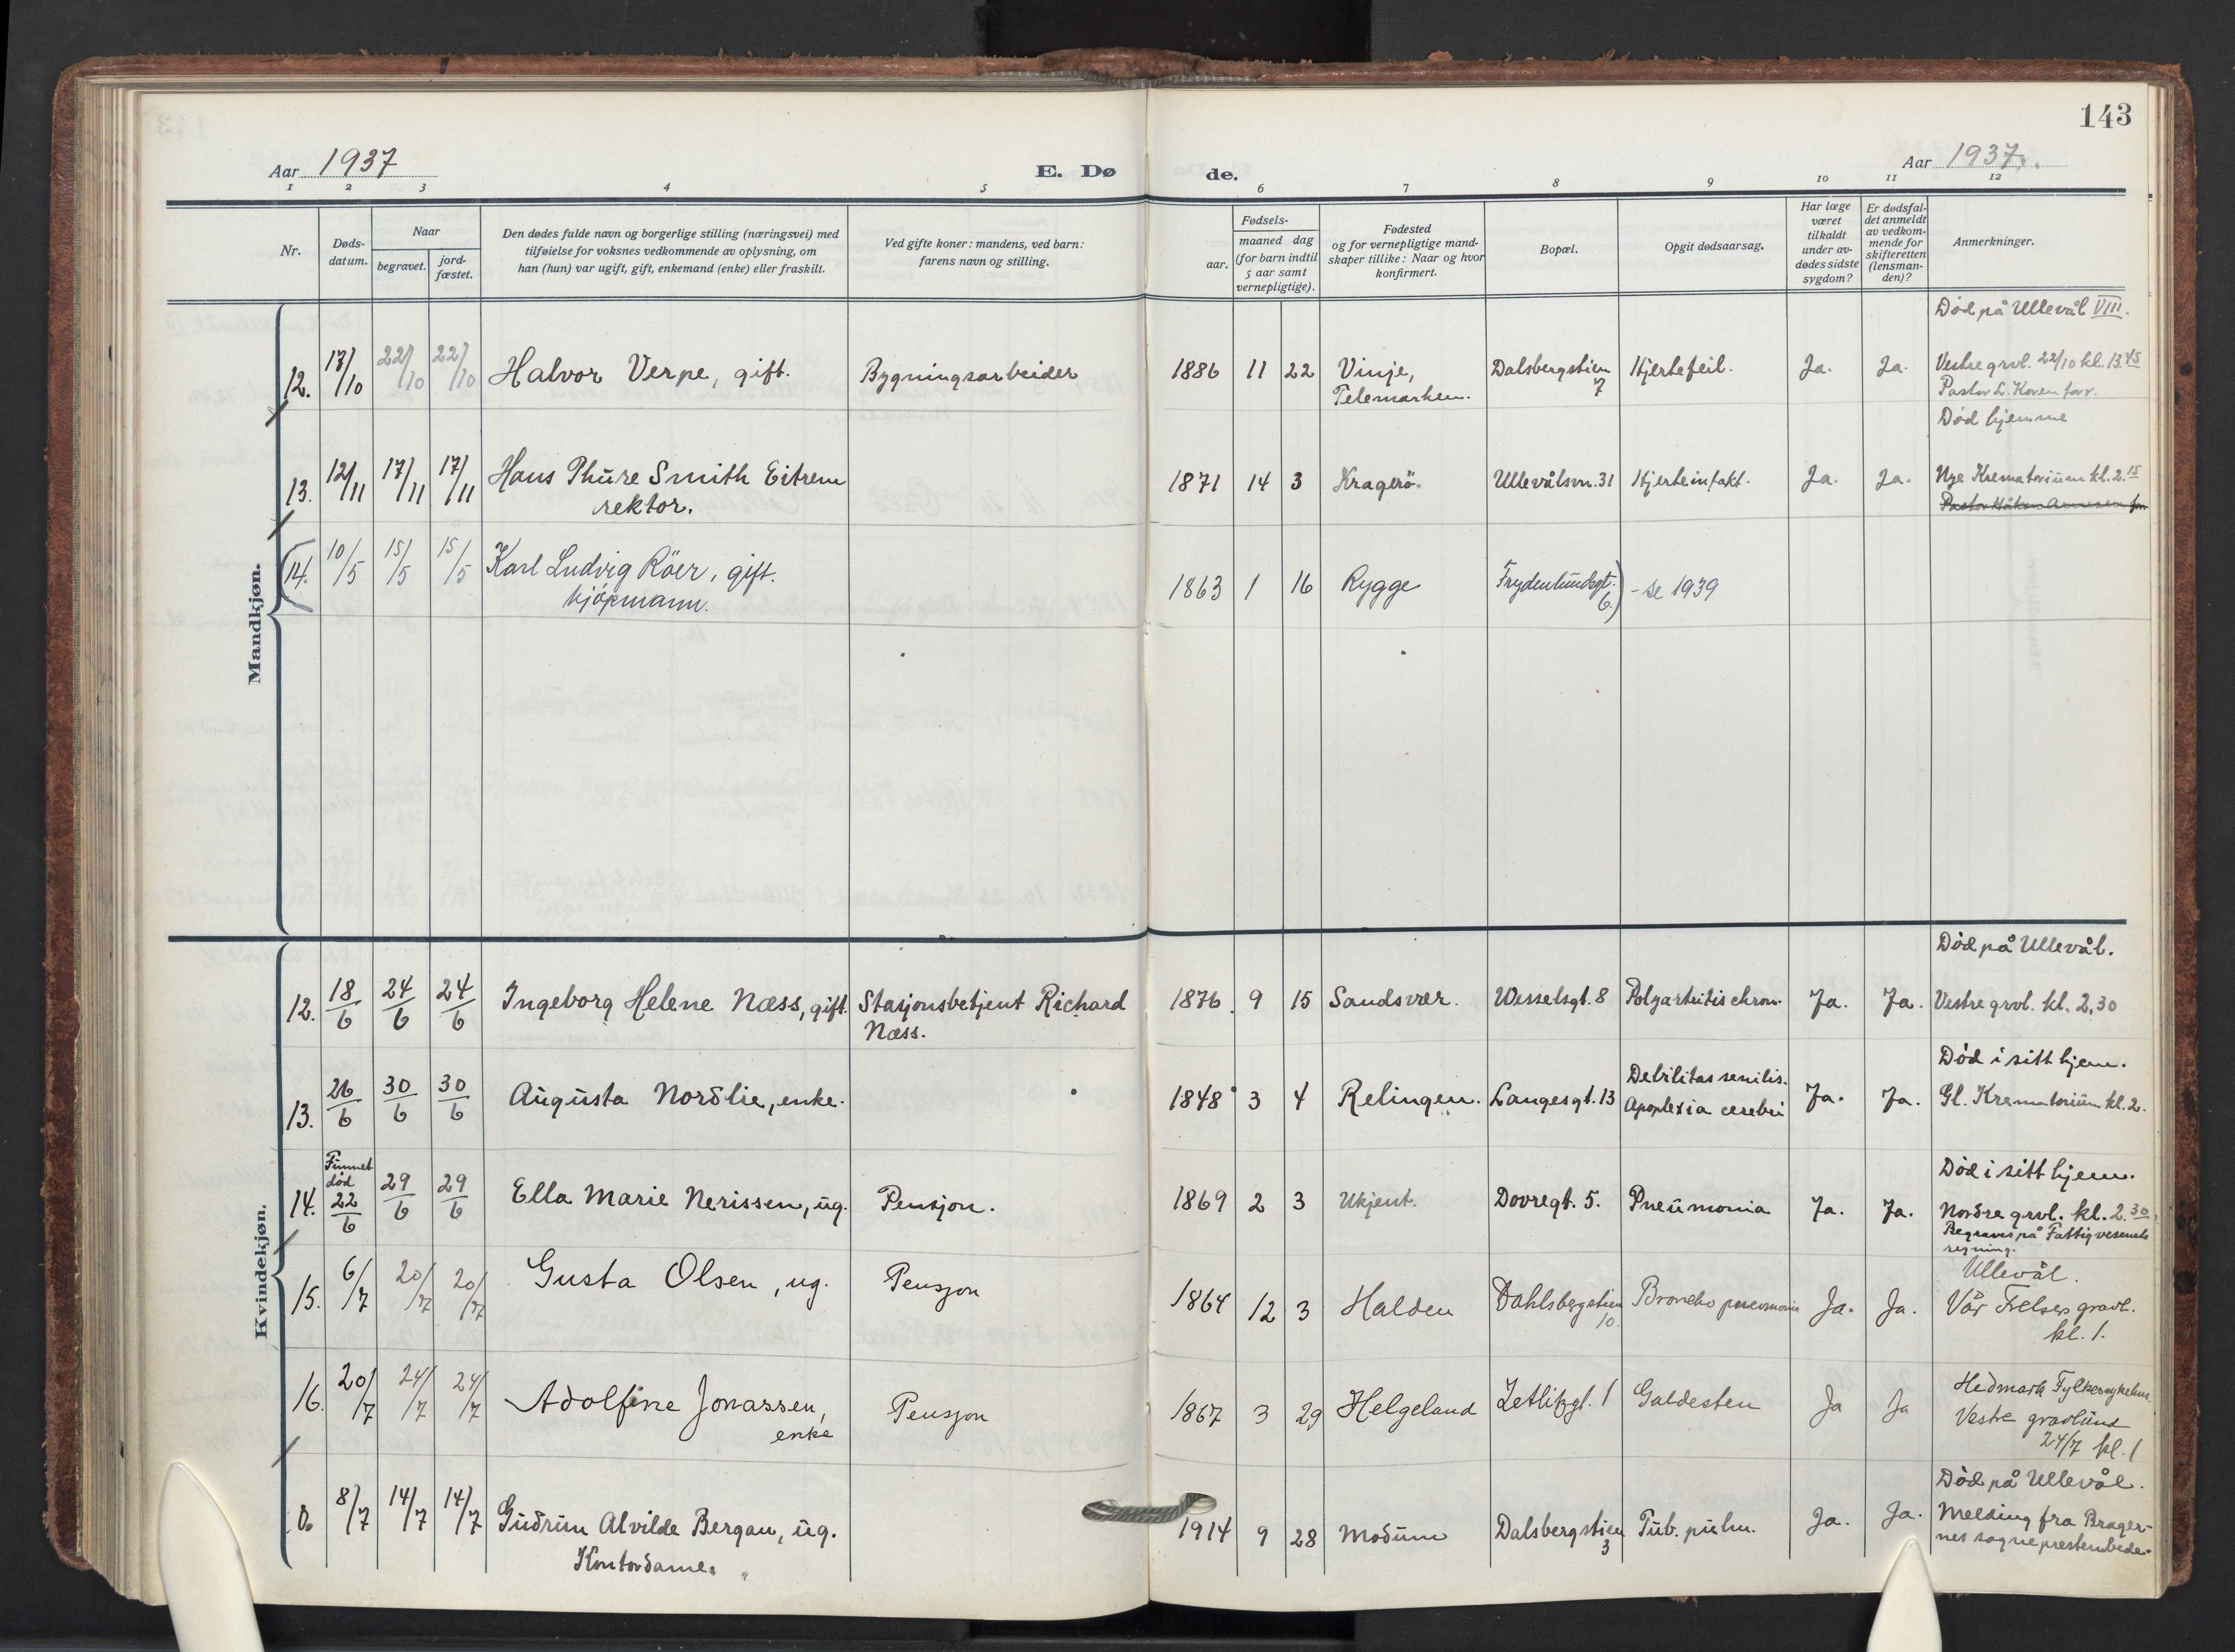 143
Aar 1937
E. Dø
de.
Aar 1937.
1 2 3 4 5 6 7 8 9 10 11 12
Nr.
Døds-
datum.
Naar
begravet.
jord-
fæstet.
Den dødes fulde navn og borgerlige stilling (næringsvei) med
tilføielse for voksnes vedkommende av oplysning, om
han (hun) var ugift, gift, enkemand (enke) eller fraskilt.
Ved gifte koner: mandens, ved barn:
farens navn og stilling.
Fødsels-
aar.
maaned dag
(for barn indtil
5 aar samt
vernepligtige).
Fødested
og for vernepligtige mand-
skaper tillike: Naar og hvor
konfirmert.
Bopæl.
Opgit dødsaarsag.
Har læge
været
tilkaldt
under av-
dødes sidste
sygdom?
Er dødsfal-
det anmeldt
av vedkom-
mende for
skifteretten
(lensman-
den)?
Anmerkninger.
Mandkjøn.
Død på Ullevål VIII.
12. 17/10 22/10 22/10 Halvor Verpe, gift. Bygningsarbeider 1886 11 22 Vinje, Dalsbergstien Hjertefeil. Ja. Ja. Vestre grvl. 22/10 kl. 13.45
Telemarken. 7 Pastor L. Koren forr.
Død hjemme
13. 12/11 17/11 17/11 Hans Thüre Smith Eitrem 1871 14 3 Kragerö. Ullevålsvn. 31 Hjerteinfakt. Ja. Ja. Nye Krematoriüm kl. 2.15
rektor. Pastor Håkon Arnesen
(14. 10/5 15/5 15/5 Karl Ludvig Röer, gift. 1863 1 16 Rygge Frydenlundsgt. - se 1939
kjöpmann. 6.)
Kvindekjøn.
Død på Ullevål.
12. 18/6 24/6 24/6 Ingeborg Helene Næss, gift. Stasjonsbetjent Richard 1876. 9 15 Sandsvær. Wesselsgt. 8 Polyartritis chron. Ja. Ja. Vestre grvl. kl. 2,30
Næss.
Død i sitt hjem.
13. 26/6 30/6 30/6 Aügüsta Nordlie, enke. 1848 3 4 Relingen. Langesgt. 13 Debilitas senilis. Ja. Ja. Gl. Krematoriüm kl. 2.
Apoplexia cerebri
Fünnet
død
Død i sitt hjem.
14. 22/6 29/6 29/6 Ella Marie Nerissen, üg. Pensjon. 1869 2 3 Ukjent. Dovregt. 5. Pneümonia Ja. Ja. Nordre grvl. kl. 2.30
Begraves på Fattigvesenets
regning.
Ullevål.
15. 6/7 20/7 20/7 Gusta Olsen, ug. Pensjon 1864 12 3 Halden Dahlsbergstien Broncho pneumonia Ja. Ja. Vår Frelsers gravl.
10. kl. 1.
Hedmark Fylkessykehus.
16. 20/7 24/7 24/7 Adolfine Jonassen, Pensjon 1867 3 29 Helgeland Zetlitzgt. 1 Galdesten Ja Ja Vestre gravlünd
enke 24/7 kl. 1
Død på Ullevål.
0. 8/7 14/7 14/7 Güdrün Alvilde Bergan, üg. 1914 9 28 Modüm Dalsbergstien Tub. pülm. Ja. Ja. Melding fra Brager-
Kontordame. 3 nes sogneprestembede.